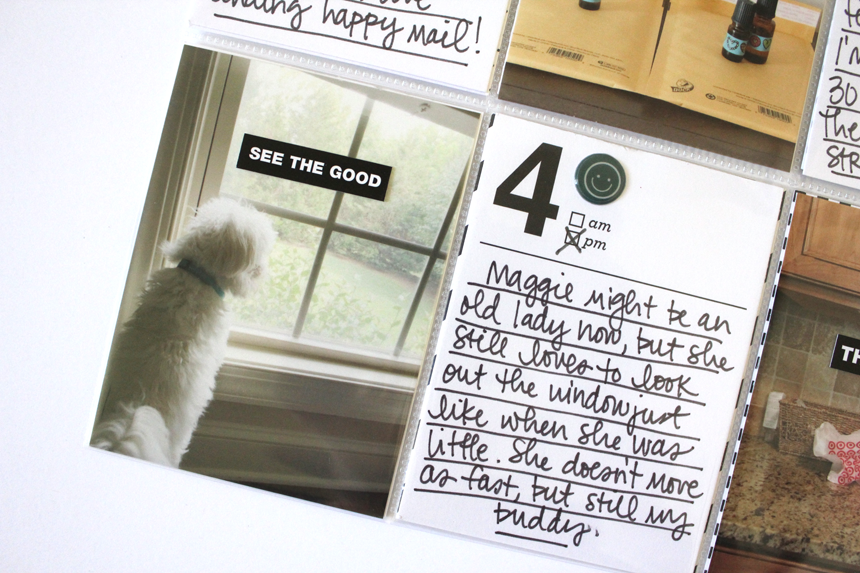 ending happy mail!
I'm
30
the
STR
SEE THE GOOD
4
am
pm
Maggie might be an
old lady now, but she
still loves to look
out the window just
like when she was
little. She doesn't move
as fast, but still my
buddy.
TH